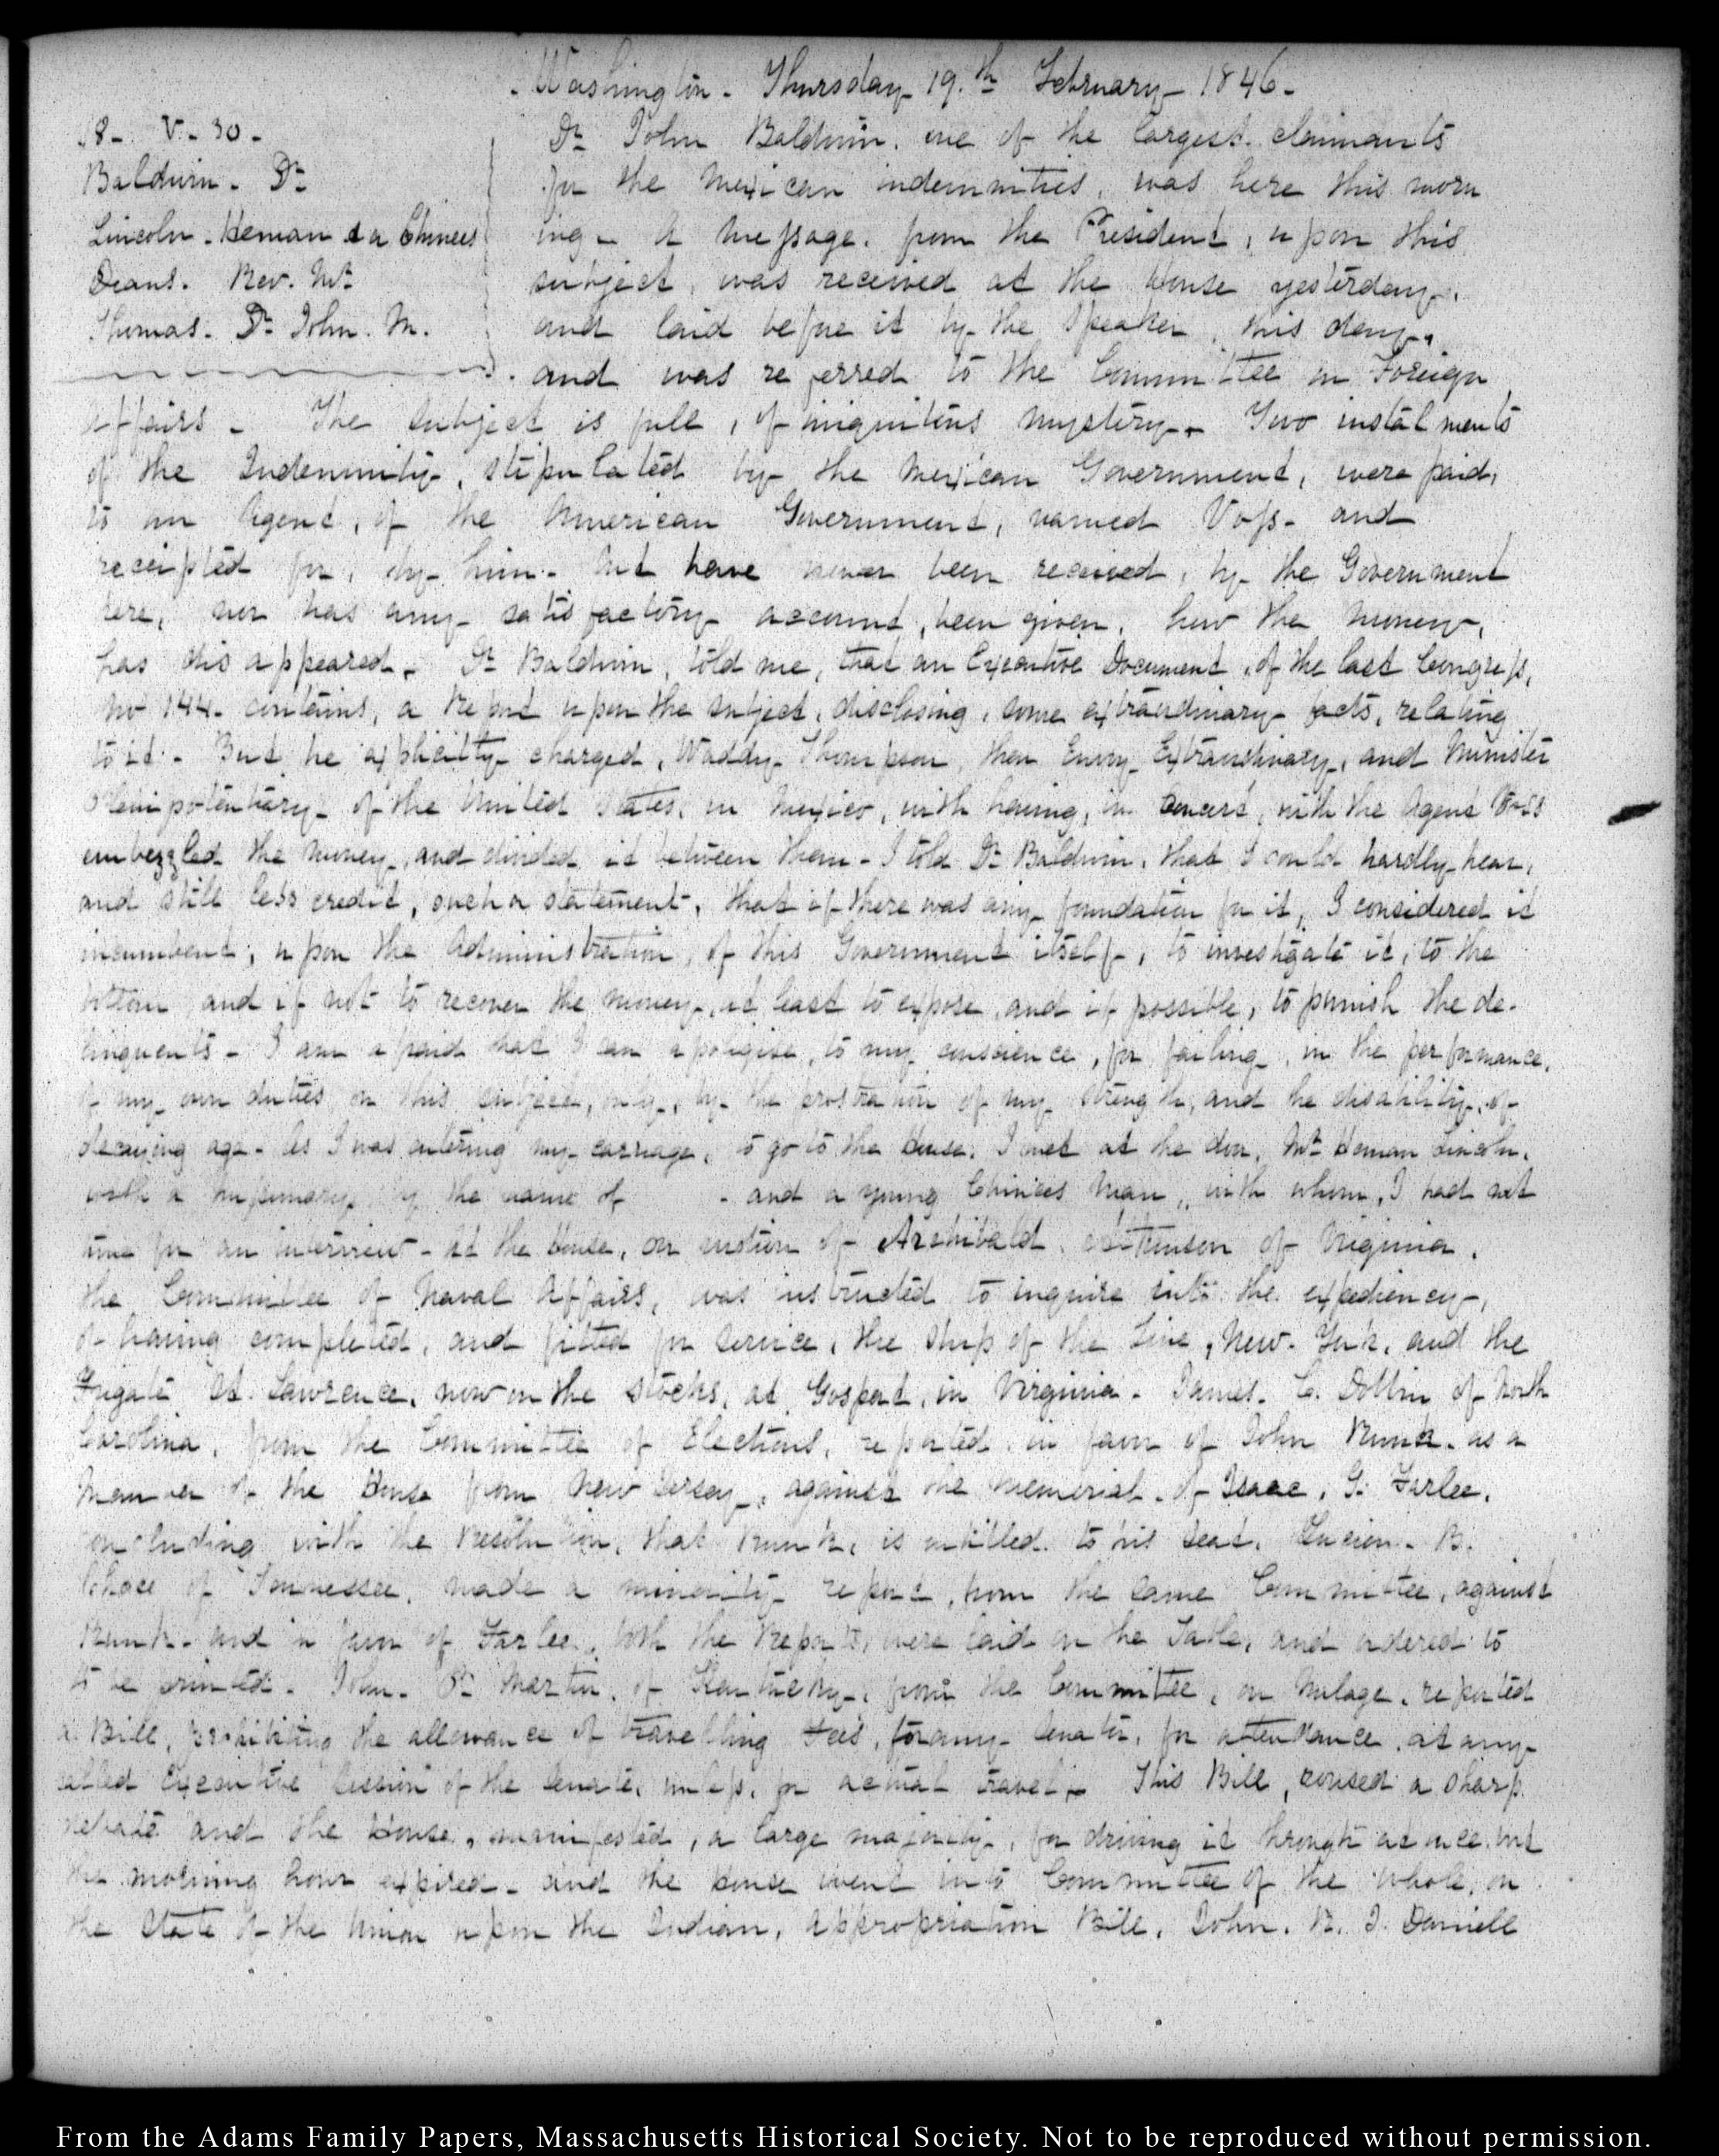 Washington. Thursday 19.th February 1846.
18. V. 30.
Baldwin. Dr
Lincoln. Heman & a Chinees
Deans. Rev. Mr
Thomas. Dr John. M.
Dr John Baldwin. one of the largest claimants
for the Mexican indemnities, was here this morn
ing. A Message. from the President, upon this
subject, was received at the House yesterday,
and laid before it by the Speaker, this day,
and was referred to the Committee on Foreign
Affairs. The subject is full, of iniquitous mystery. Two instalments
of the Indemnity, stipulated by the Mexican Government, were paid,
to an Agent, of the American Government, named Voss. and
receipted for, by him. but have never been received, by the Government
here, nor has any satisfactory account, been given, how the money,
has disappeared. Dr Baldwin, told me, that an Executive Document, of the last Congress,
No 144. contains, a Report upon the subject, disclosing, some extraordinary facts, relating
to it. But he explicitly charged, Waddy Thompson, then Envoy Extraordinary, and Minister
Plenipotentiary of the United States, in Mexico, with having, in concert, with the Agent Voss
embezzled the money, and divided it between them. I told Dr Baldwin, that I could hardly hear,
and still less credit, such a statement, that if there was any foundation for it, I considered it
incumbent, upon the Administration, of this Government itself, to investigate it, to the
bottom and if not to recover the money, at least to expose, and if possible, to punish the de-
linquents. I am afraid that I can apologise, to my conscience, for failing, in the performance,
of my own duties on this subject, only, by the prostration of my strength, and the disability, of
decaying age. As I was entering my carriage, to go to the House. I met at the door, Mr Heman Lincoln,
with a missionary, by the name of . and a young Chinees man, with whom, I had not
time for an interview. At the House, on motion of Archibald Atkinson of Virginia,
the Committee of Naval Affairs, was instructed to inquire into the expediency,
of having completed, and fitted for service, the ship of the Line, New. York, and the
Frigate St. Lawrence, now on the stocks, at Gosport, in Virginia. James. C. Dobbin of North
Carolina, from the Committee of Elections, reported in favor of John Runk. as a
Member of the House from New Jersey, against the memorial of Isaac, G. Farlee,
concluding with the Resolution, that Runk, is entitled to his seat. Lucien. B.
Chace of Tennessee, made a minority report, from the same Committee, against
Runk. and in favor of Farlee. both the Reports, were laid on the Table, and ordered to
to be printed. John. P. Martin, of Kentucky, from the Committee, on Mileage, reported
a Bill, prohibiting the allowance of travelling fees, to any Senator, for attendance, at any
called Executive Session of the Senate, unless, for actual travel. This Bill, roused a sharp
debate and the House, manifested, a large majority, for driving it through at once. but
the morning hour expired. and the House went into Committee of the whole, on
the State of the Union upon the Indian, Appropriation Bill, John. R. J. Daniell
From the Adams Family Papers, Massachusetts Historical Society. Not to be reproduced without permission.